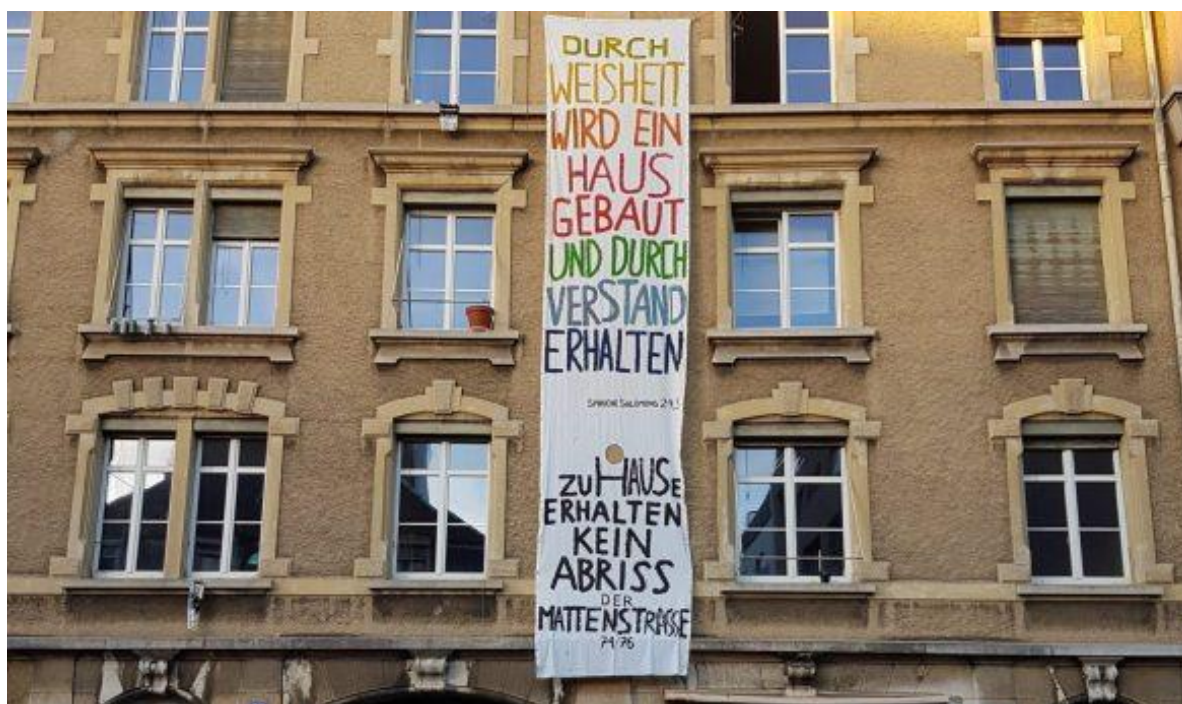 DURCH
WEISHEIT
WIRD EIN
HAUS
GEBAUT
UND DURCH
VERSTAND
ERHALTEN
SPRÜCHE SALOMONS 24,3
ZUHAUSE
ERHALTEN
KEIN
ABRISS
DER
MATTENSTRASSE
74/76